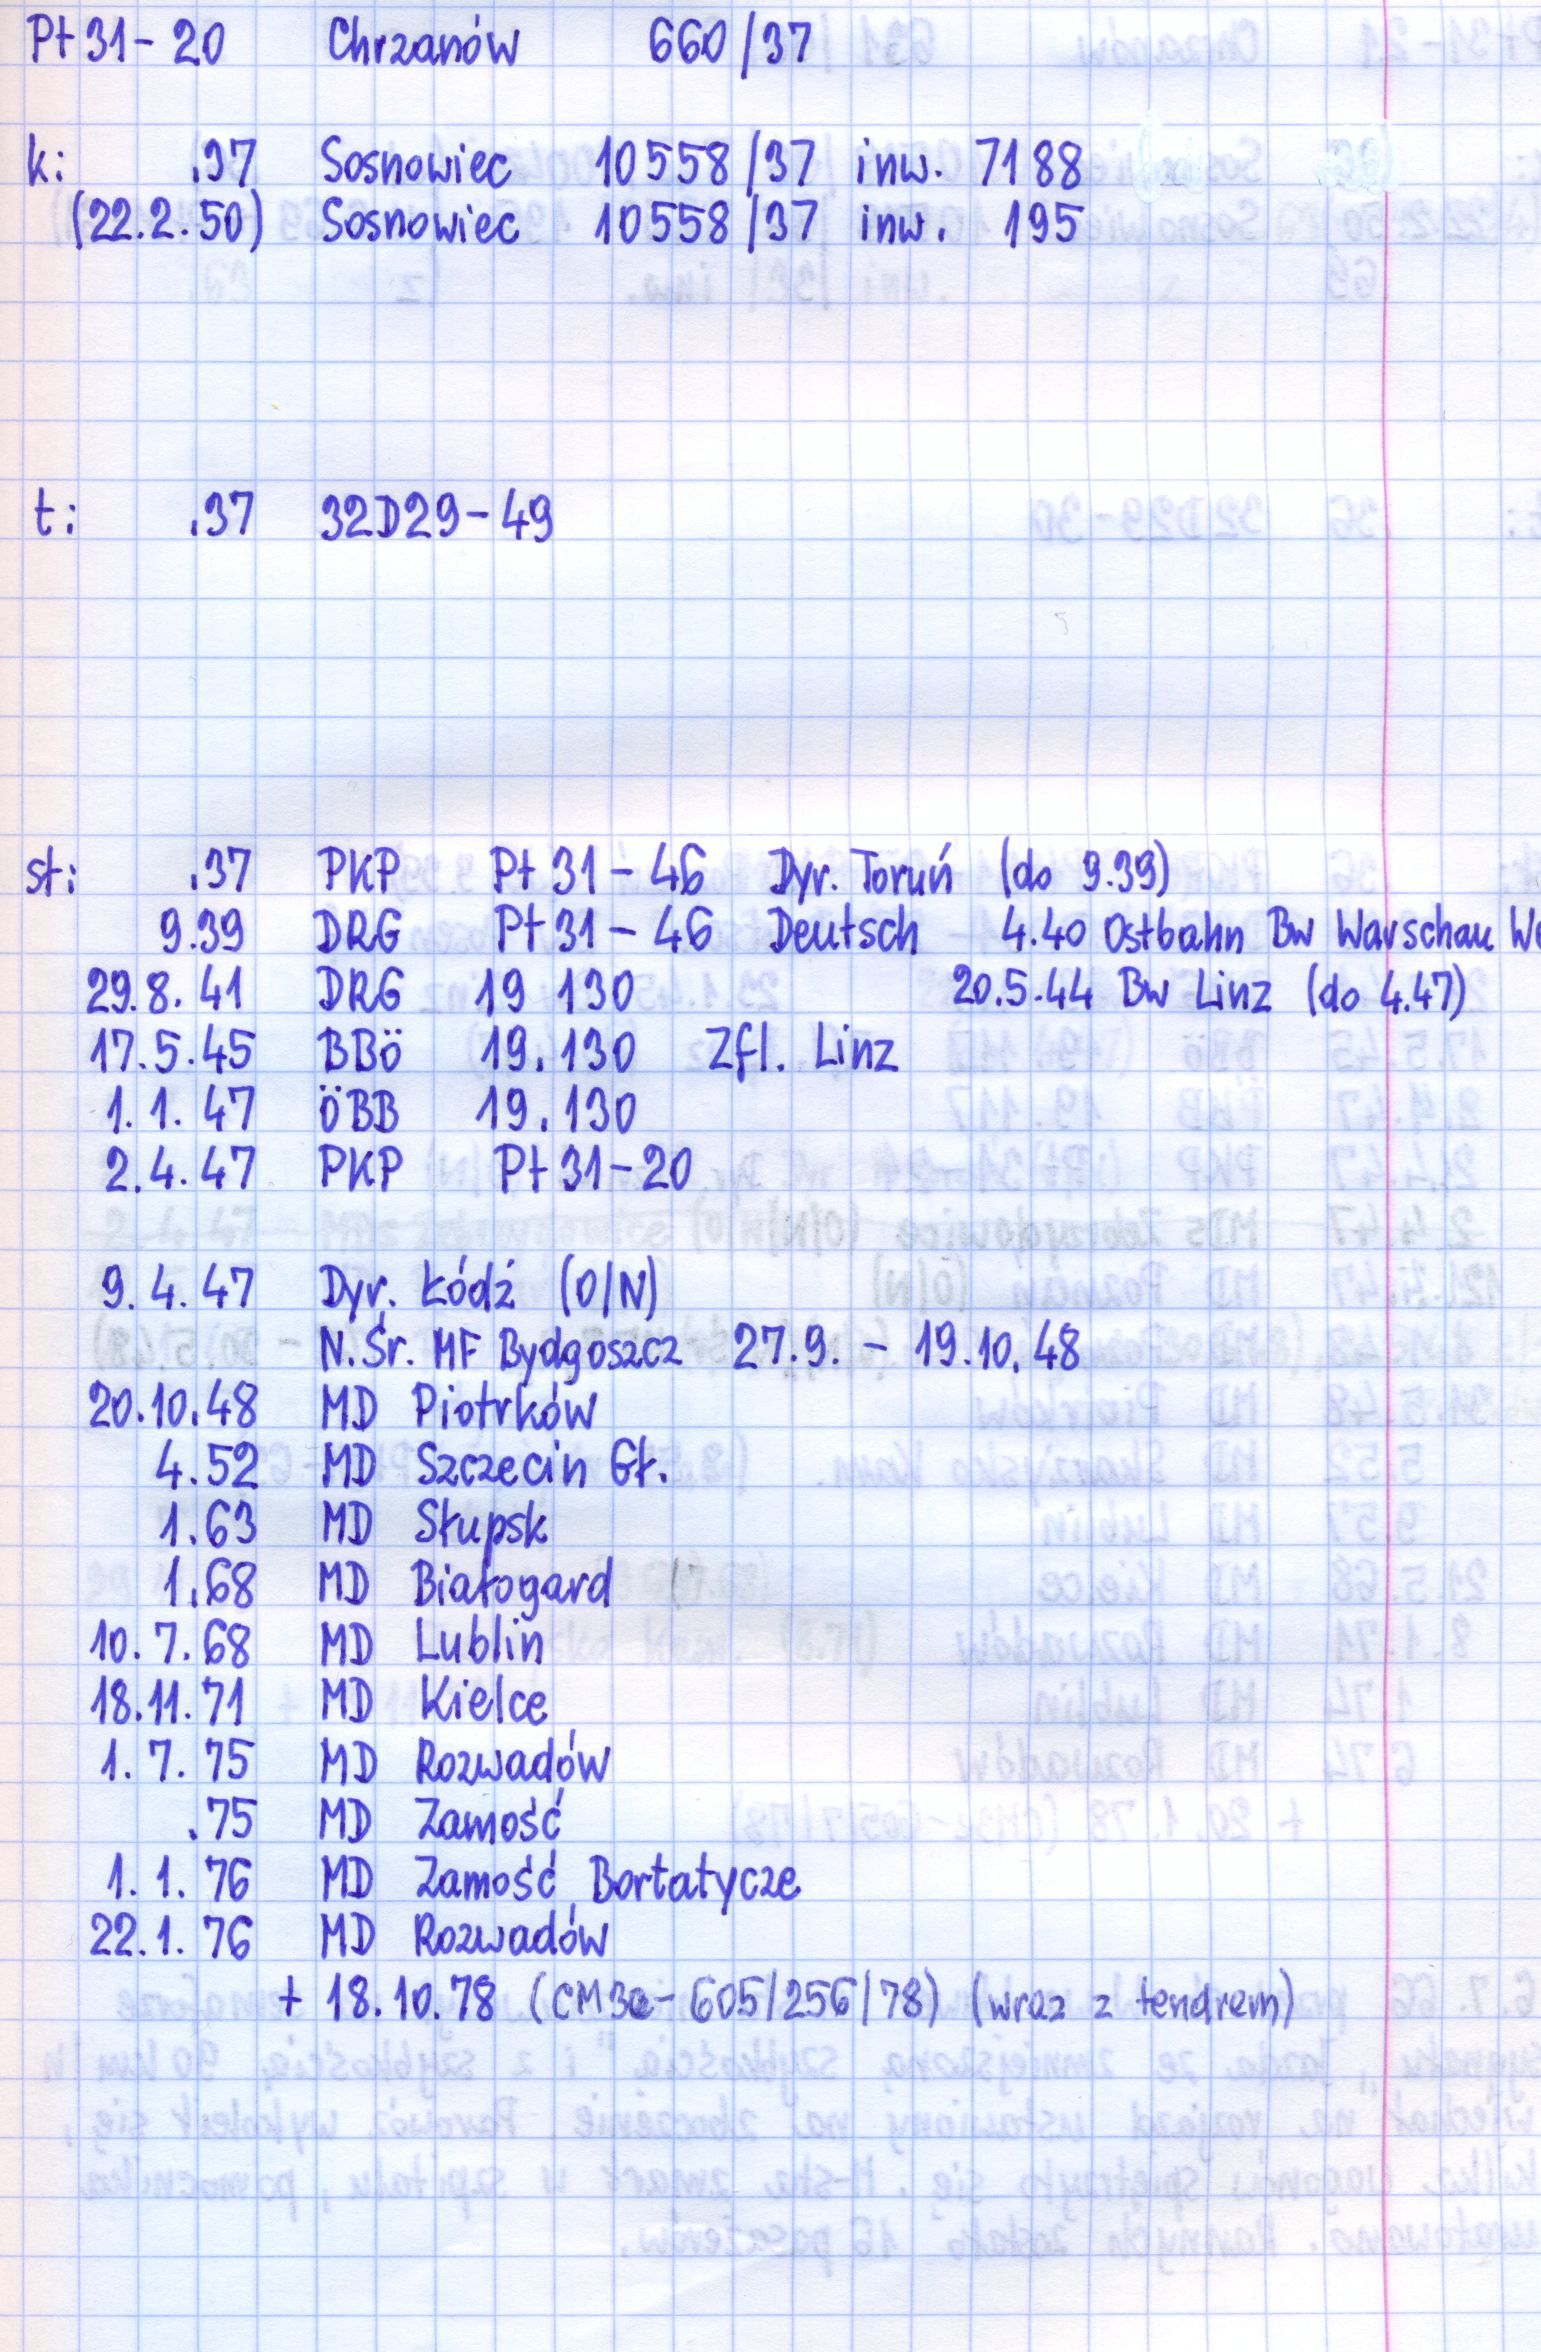 Pt 31-20 Chrzanów 660/37
k: .37 Sosnowiec 10558/37 inw. 7188
(22.2.50) Sosnowiec 10558/37 inw. 195
t: .37 32D29-49
st: .37 PKP Pt 31-46 Dyr. Toruń (do 9.39)
9.39 DRG Pt 31-46 Deutsch 4.40 Ostbahn Bw Warschau
29.8.41 DRG 19 130 20.5.44 Bw Linz (do 4.47)
17.5.45 BBö 19.130 Zfl. Linz
1.1.47 ÖBB 19.130
2.4.47 PKP Pt 31-20
9.4.47 Dyr. Łódź (O/N)
N.Śr. MF Bydgoszcz 27.9. - 19.10.48
20.10.48 MD Piotrków
4.52 MD Szczecin Gł.
1.63 MD Słupsk
1.68 MD Białogard
10.7.68 MD Lublin
18.11.71 MD Kielce
1.7.75 MD Rozwadów
.75 MD Zamość
1.1.76 MD Zamość Bortatycze
22.1.76 MD Rozwadów
+ 18.10.78 (CM3e-605/256/78) (wraz z tendrem)